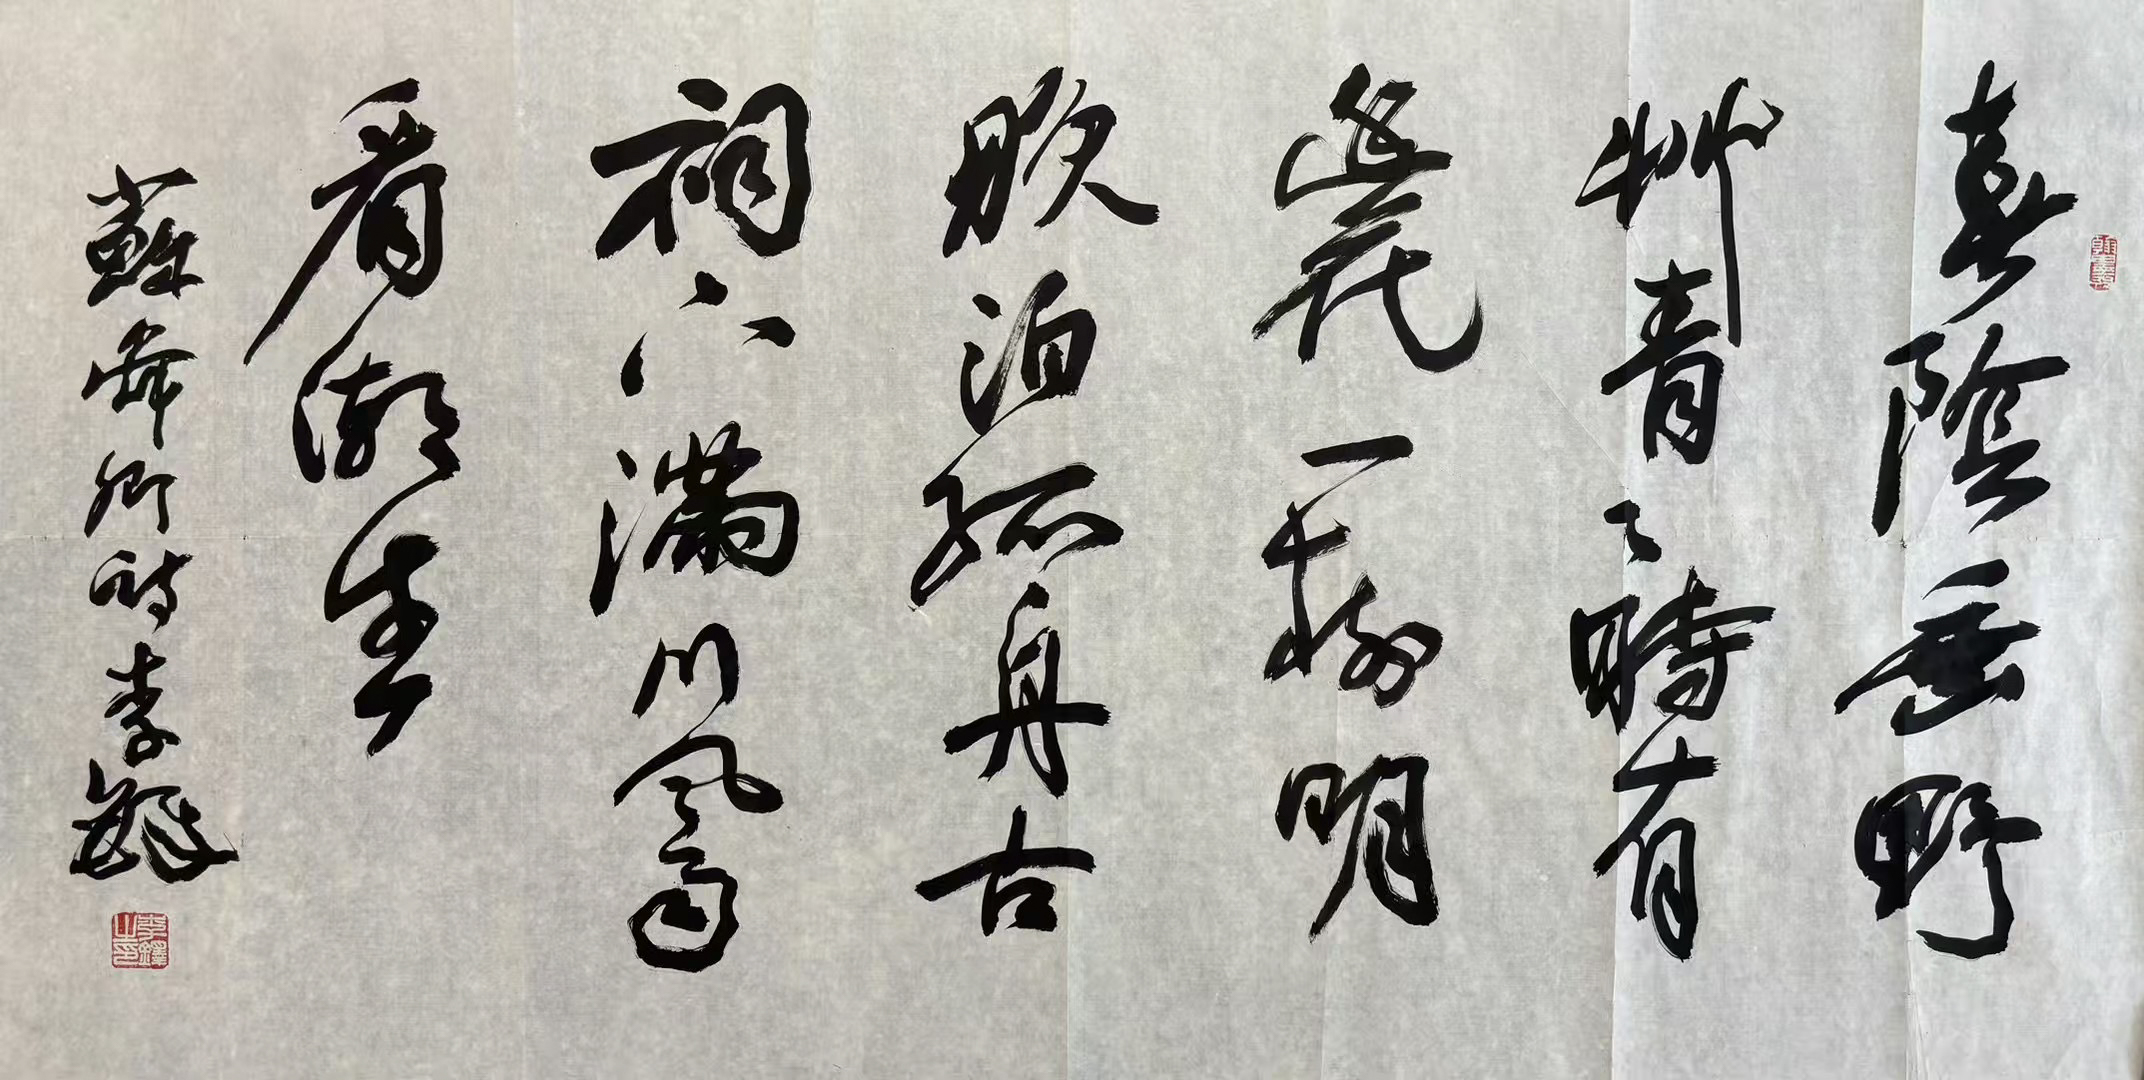 春陰垂野
艸青々時有
幽花一樹明
晚泊孤舟古
祠下滿川風雨
看潮生
蘇舜卿詩李鐸
李鐸之印